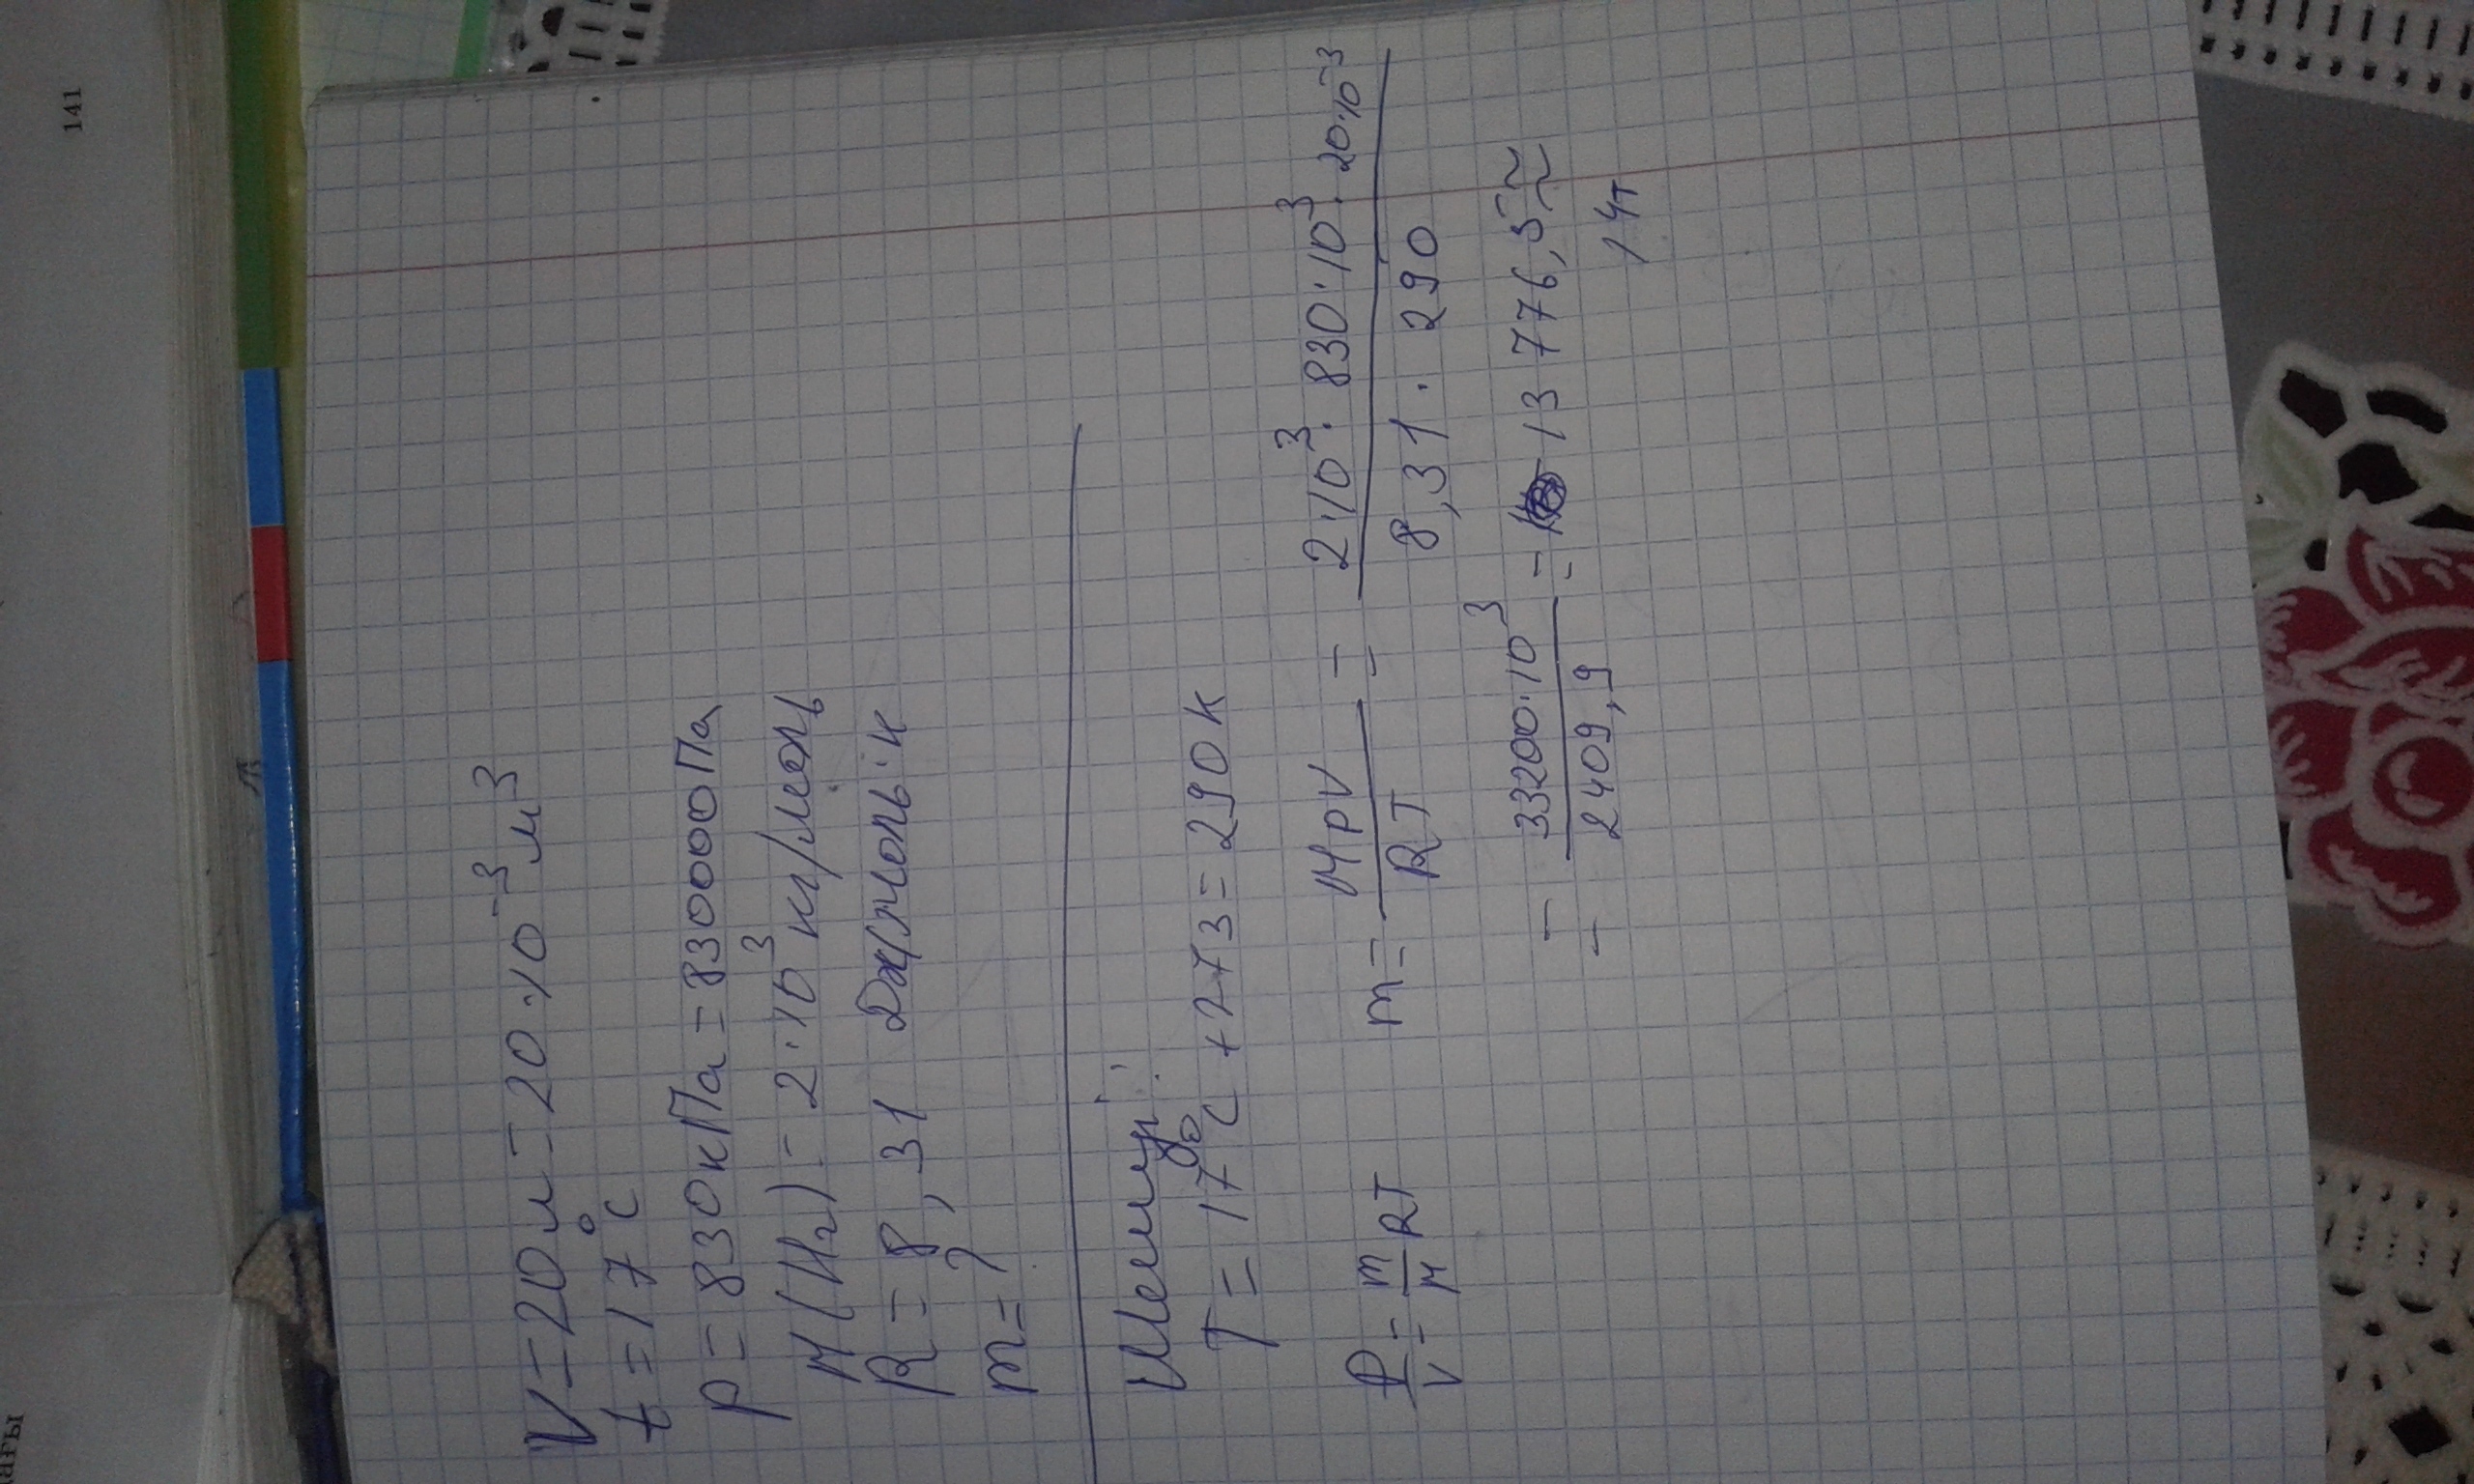 141
V = 20л = 20·10⁻³м³
t = 17°C
p = 830кПа = 830000Па
M(H₂) = 2·10³кг/моль
R = 8,31 Дж/моль·к
m = ?
Шешуі:
T = 17°C + 273 = 290K
P/V = m/M RT m = MpV/RT = 2·10³·830·10³·20·10⁻³/8,31·290
= 33200·10³/2409,9 = 13 776,5 ≈
14т